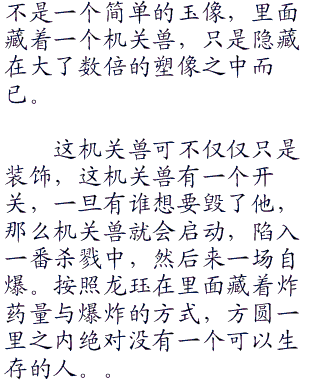 不是一个简单的玉像，里面
藏着一个机关兽，只是隐藏
在大了数倍的塑像之中而
已。
这机关兽可不仅仅只是
装饰，这机关兽有一个开
关，一旦有谁想要毁了他，
那么机关兽就会启动，陷入
一番杀戮中，然后来一场自
爆。按照龙珏在里面藏着炸
药量与爆炸的方式，方圆一
里之内绝对没有一个可以生
存的人。。